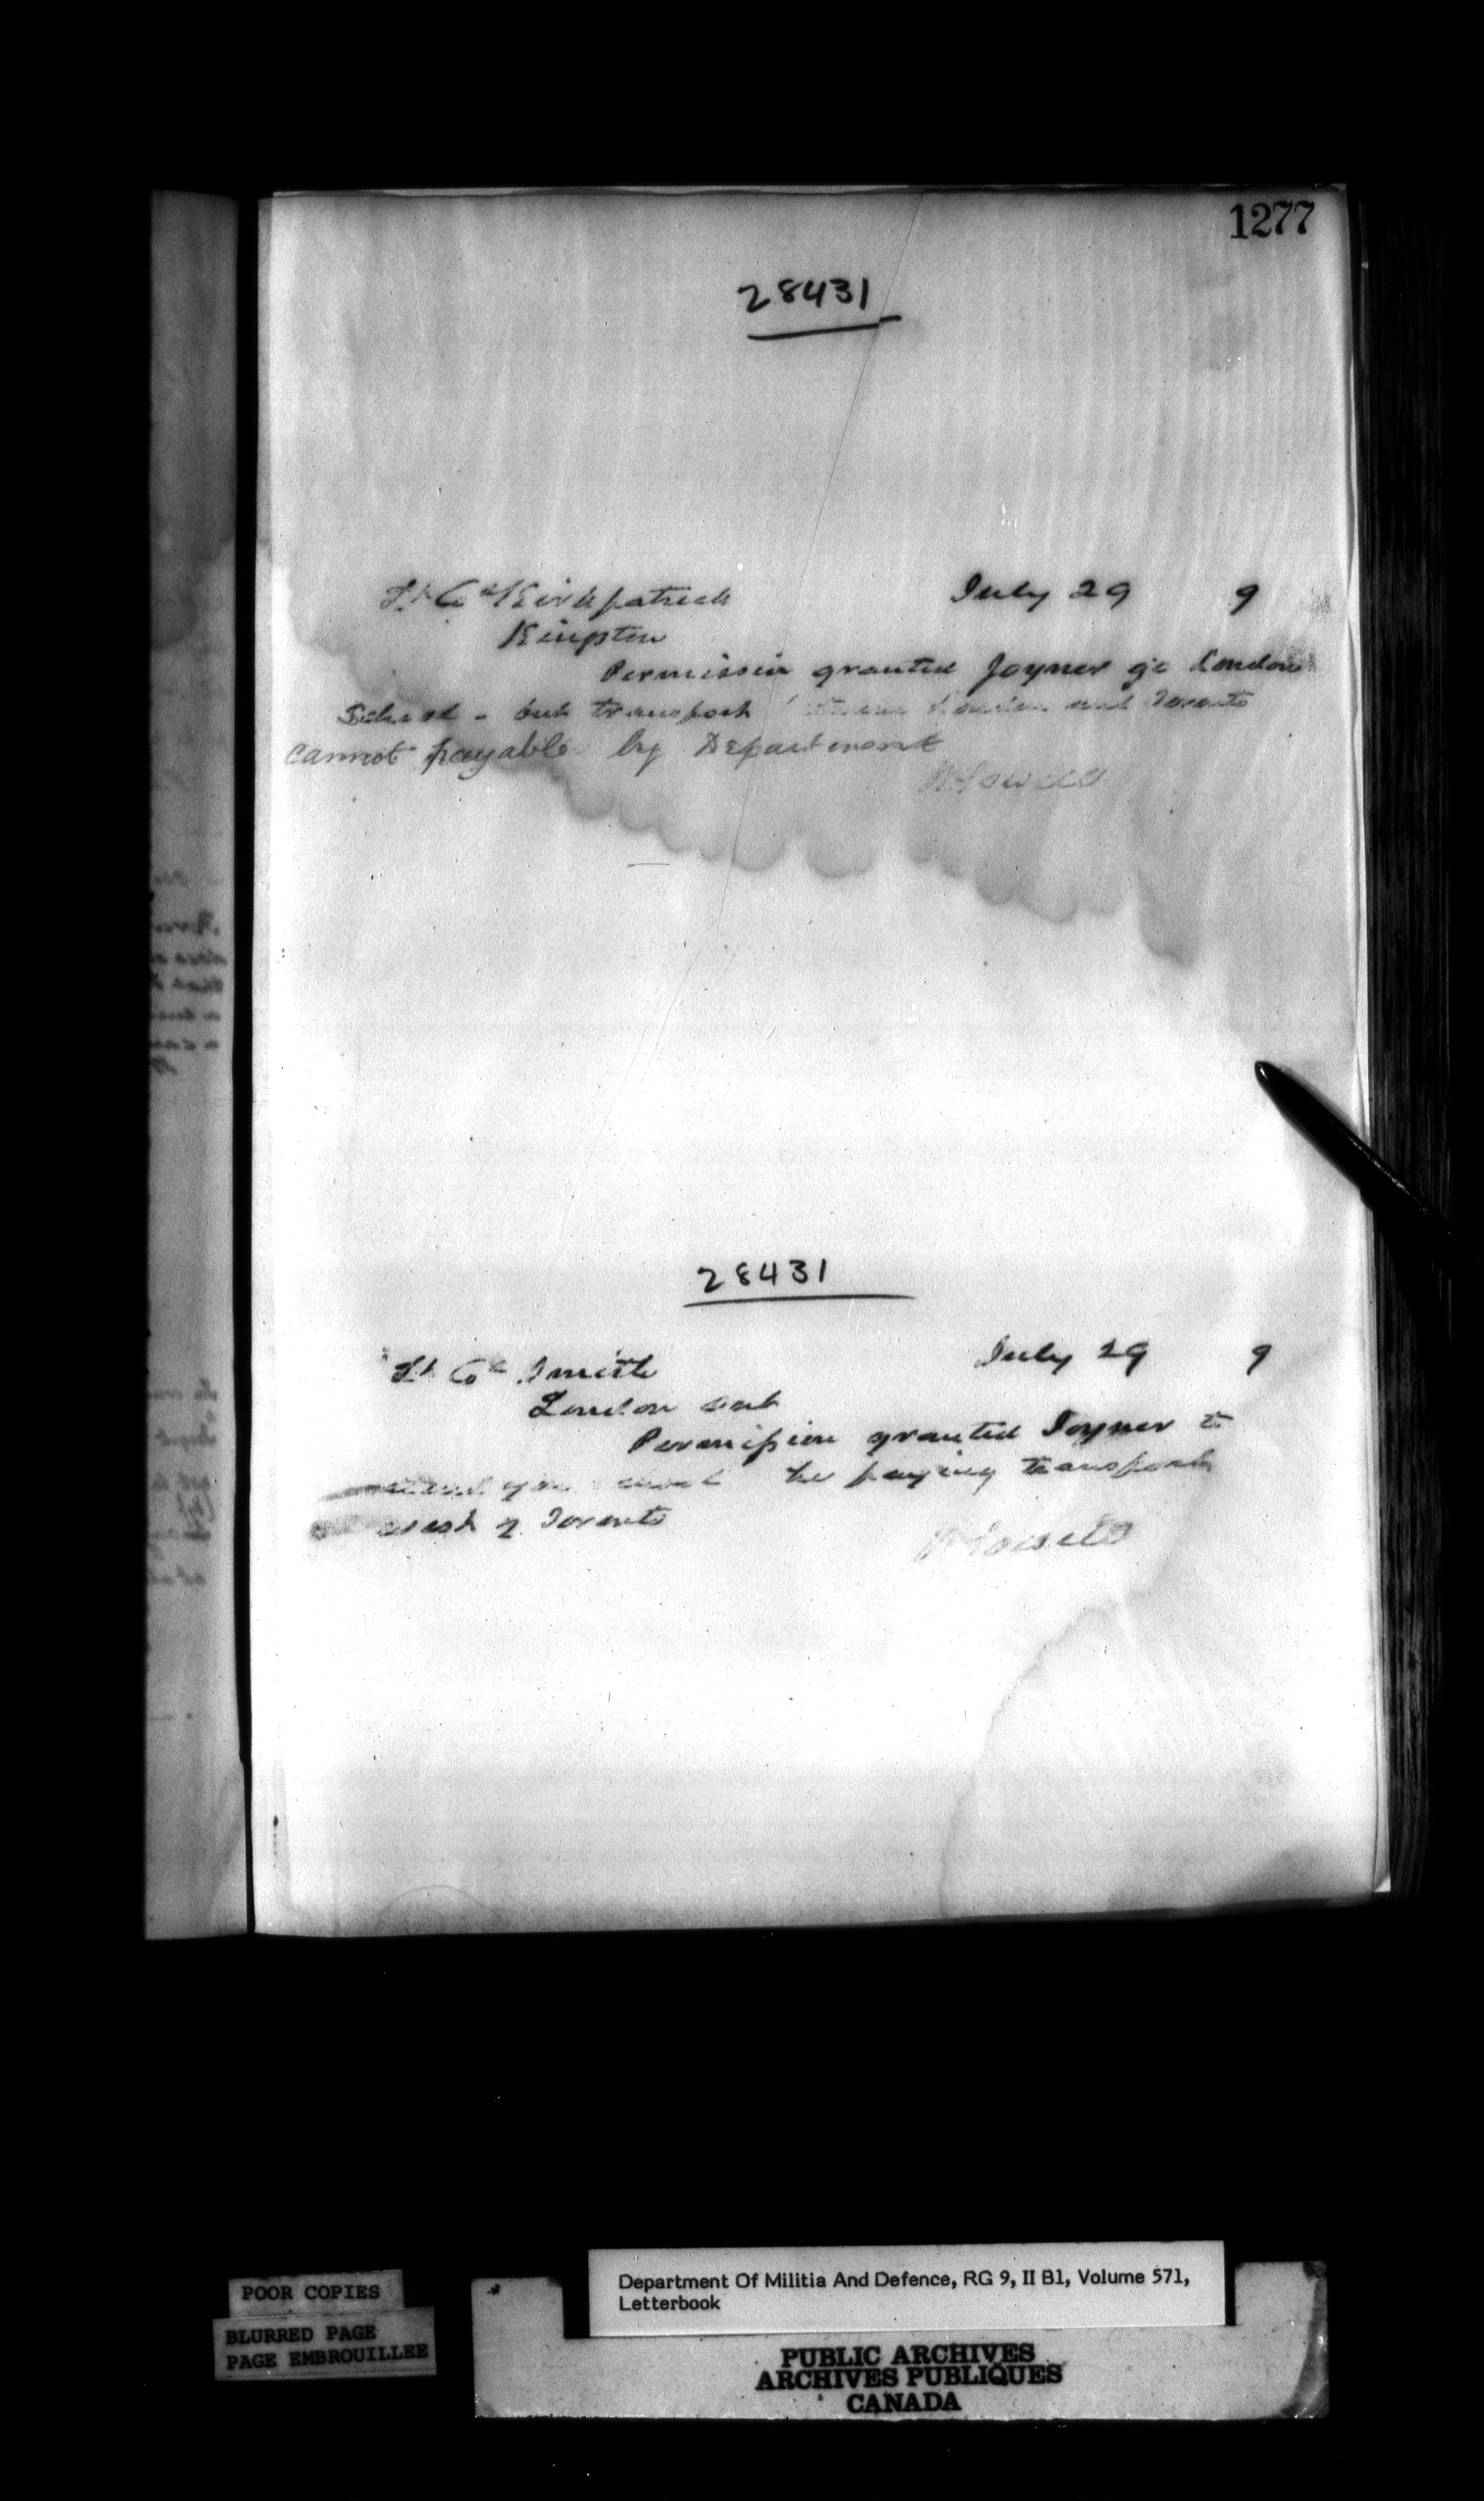 1277
28431
Lt Col Kirkpatrick July 29 9
Kingston
Permission granted Joyner go London
School - but transport between London and Toronto
cannot payable by Department
28431
Lt Col Smith July 29 9
London Ont
Permission granted Joyner to
attend your school he paying transport
west of Toronto
POOR COPIES
BLURRED PAGE
PAGE EMBROUILLEE
Department Of Militia And Defence, RG 9, II B1, Volume 571,
Letterbook
PUBLIC ARCHIVES
ARCHIVES PUBLIQUES
CANADA